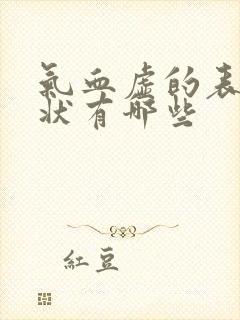 氣血虛的表
狀有哪些
紅豆